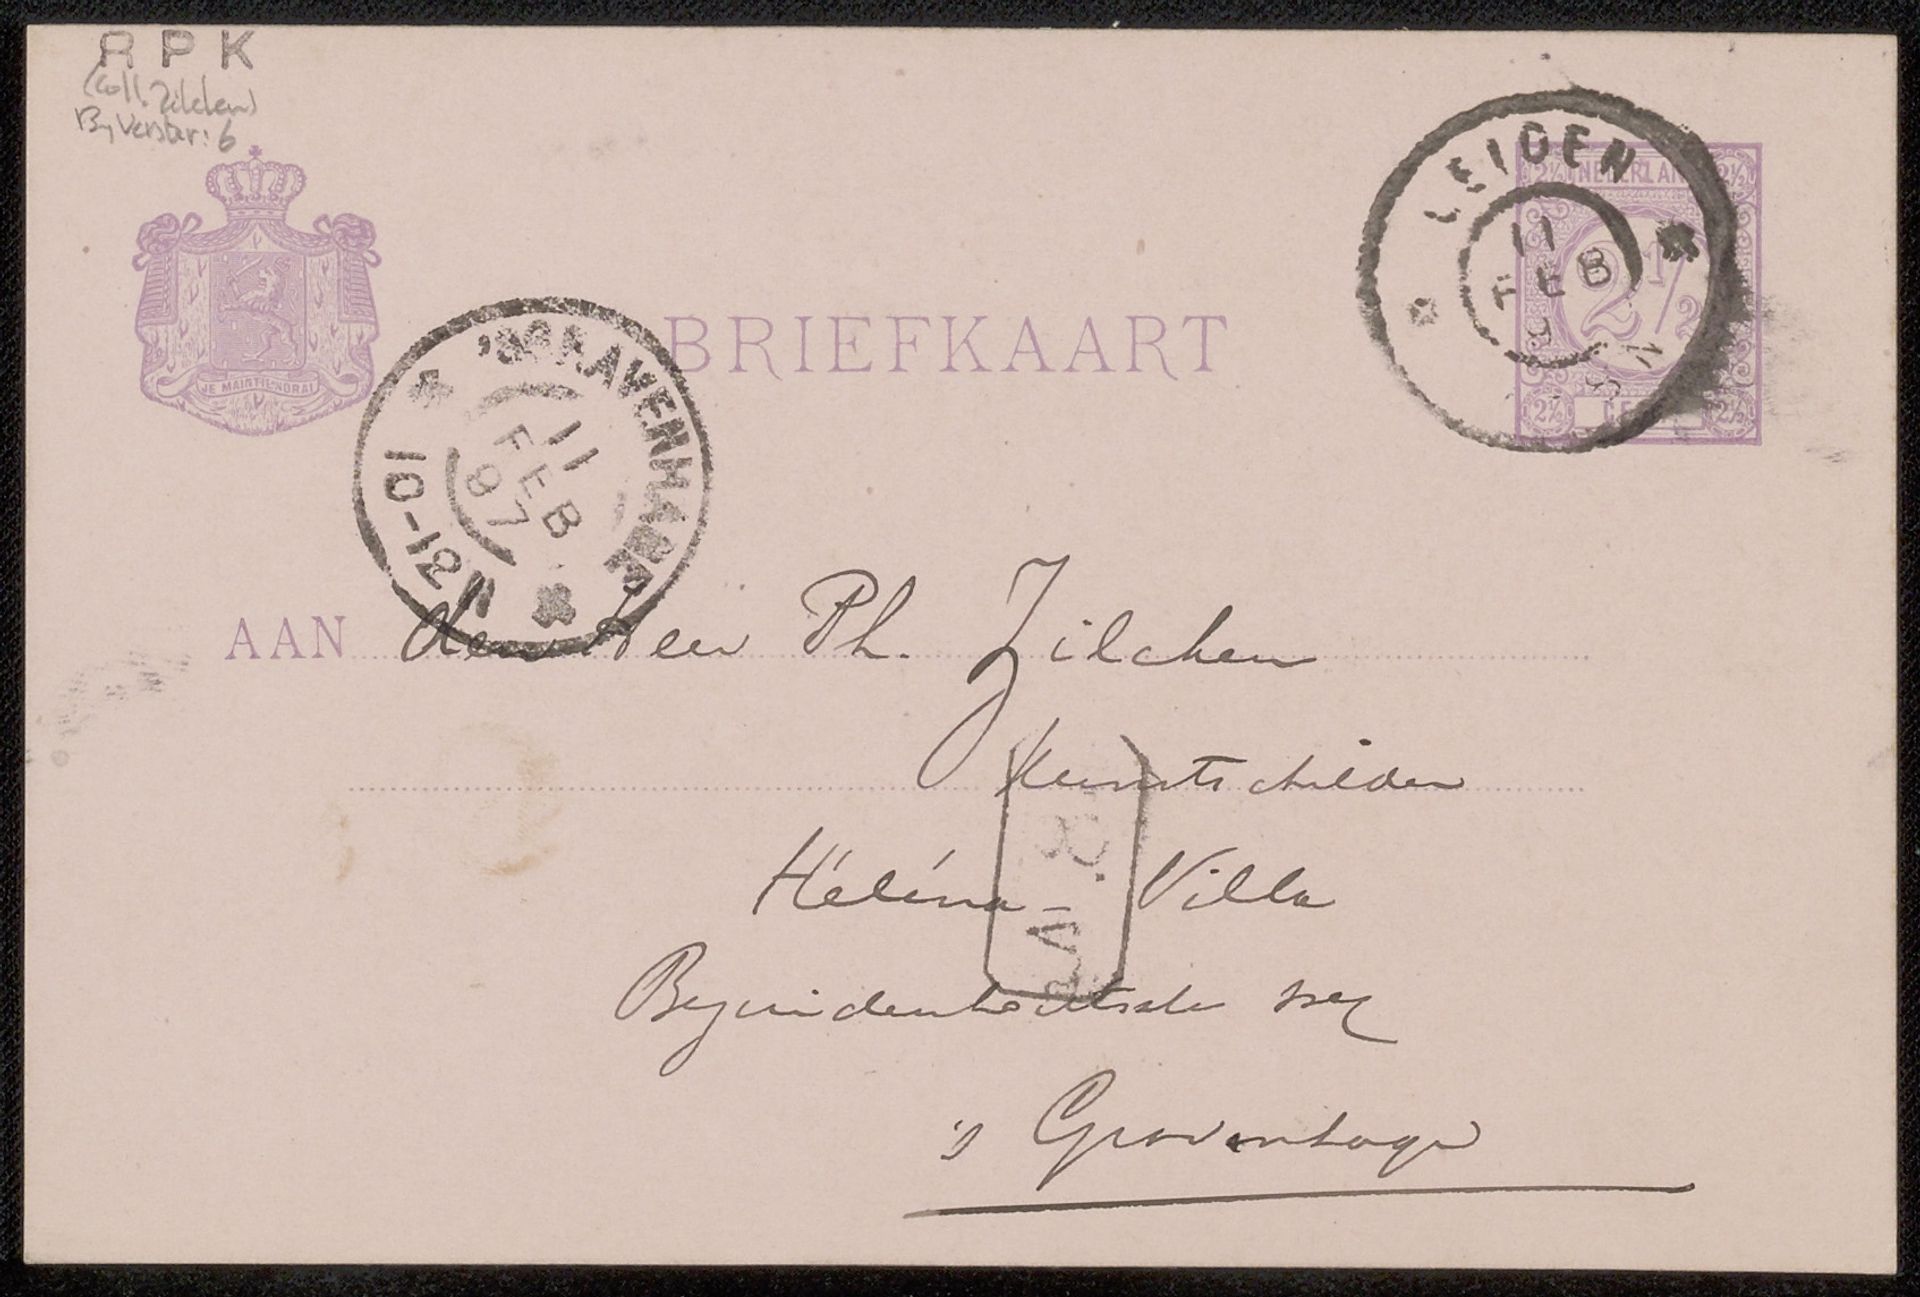 RPK
(Coll. Zilcken)
By Verster: 6
JE MAINTIENDRAI
BRIEFKAART
NEDERLAND
2½ 2½
2½
2½ CENT 2½
LEIDEN
11
FEB
9
5 N
'S GRAVENHAGE
11
FEB
97
10-12 V
AAN den Heer Ph. Zilcken
Kunstschilder
Héléna-Villa
Bezuidenhoutsche weg
's Gravenhage